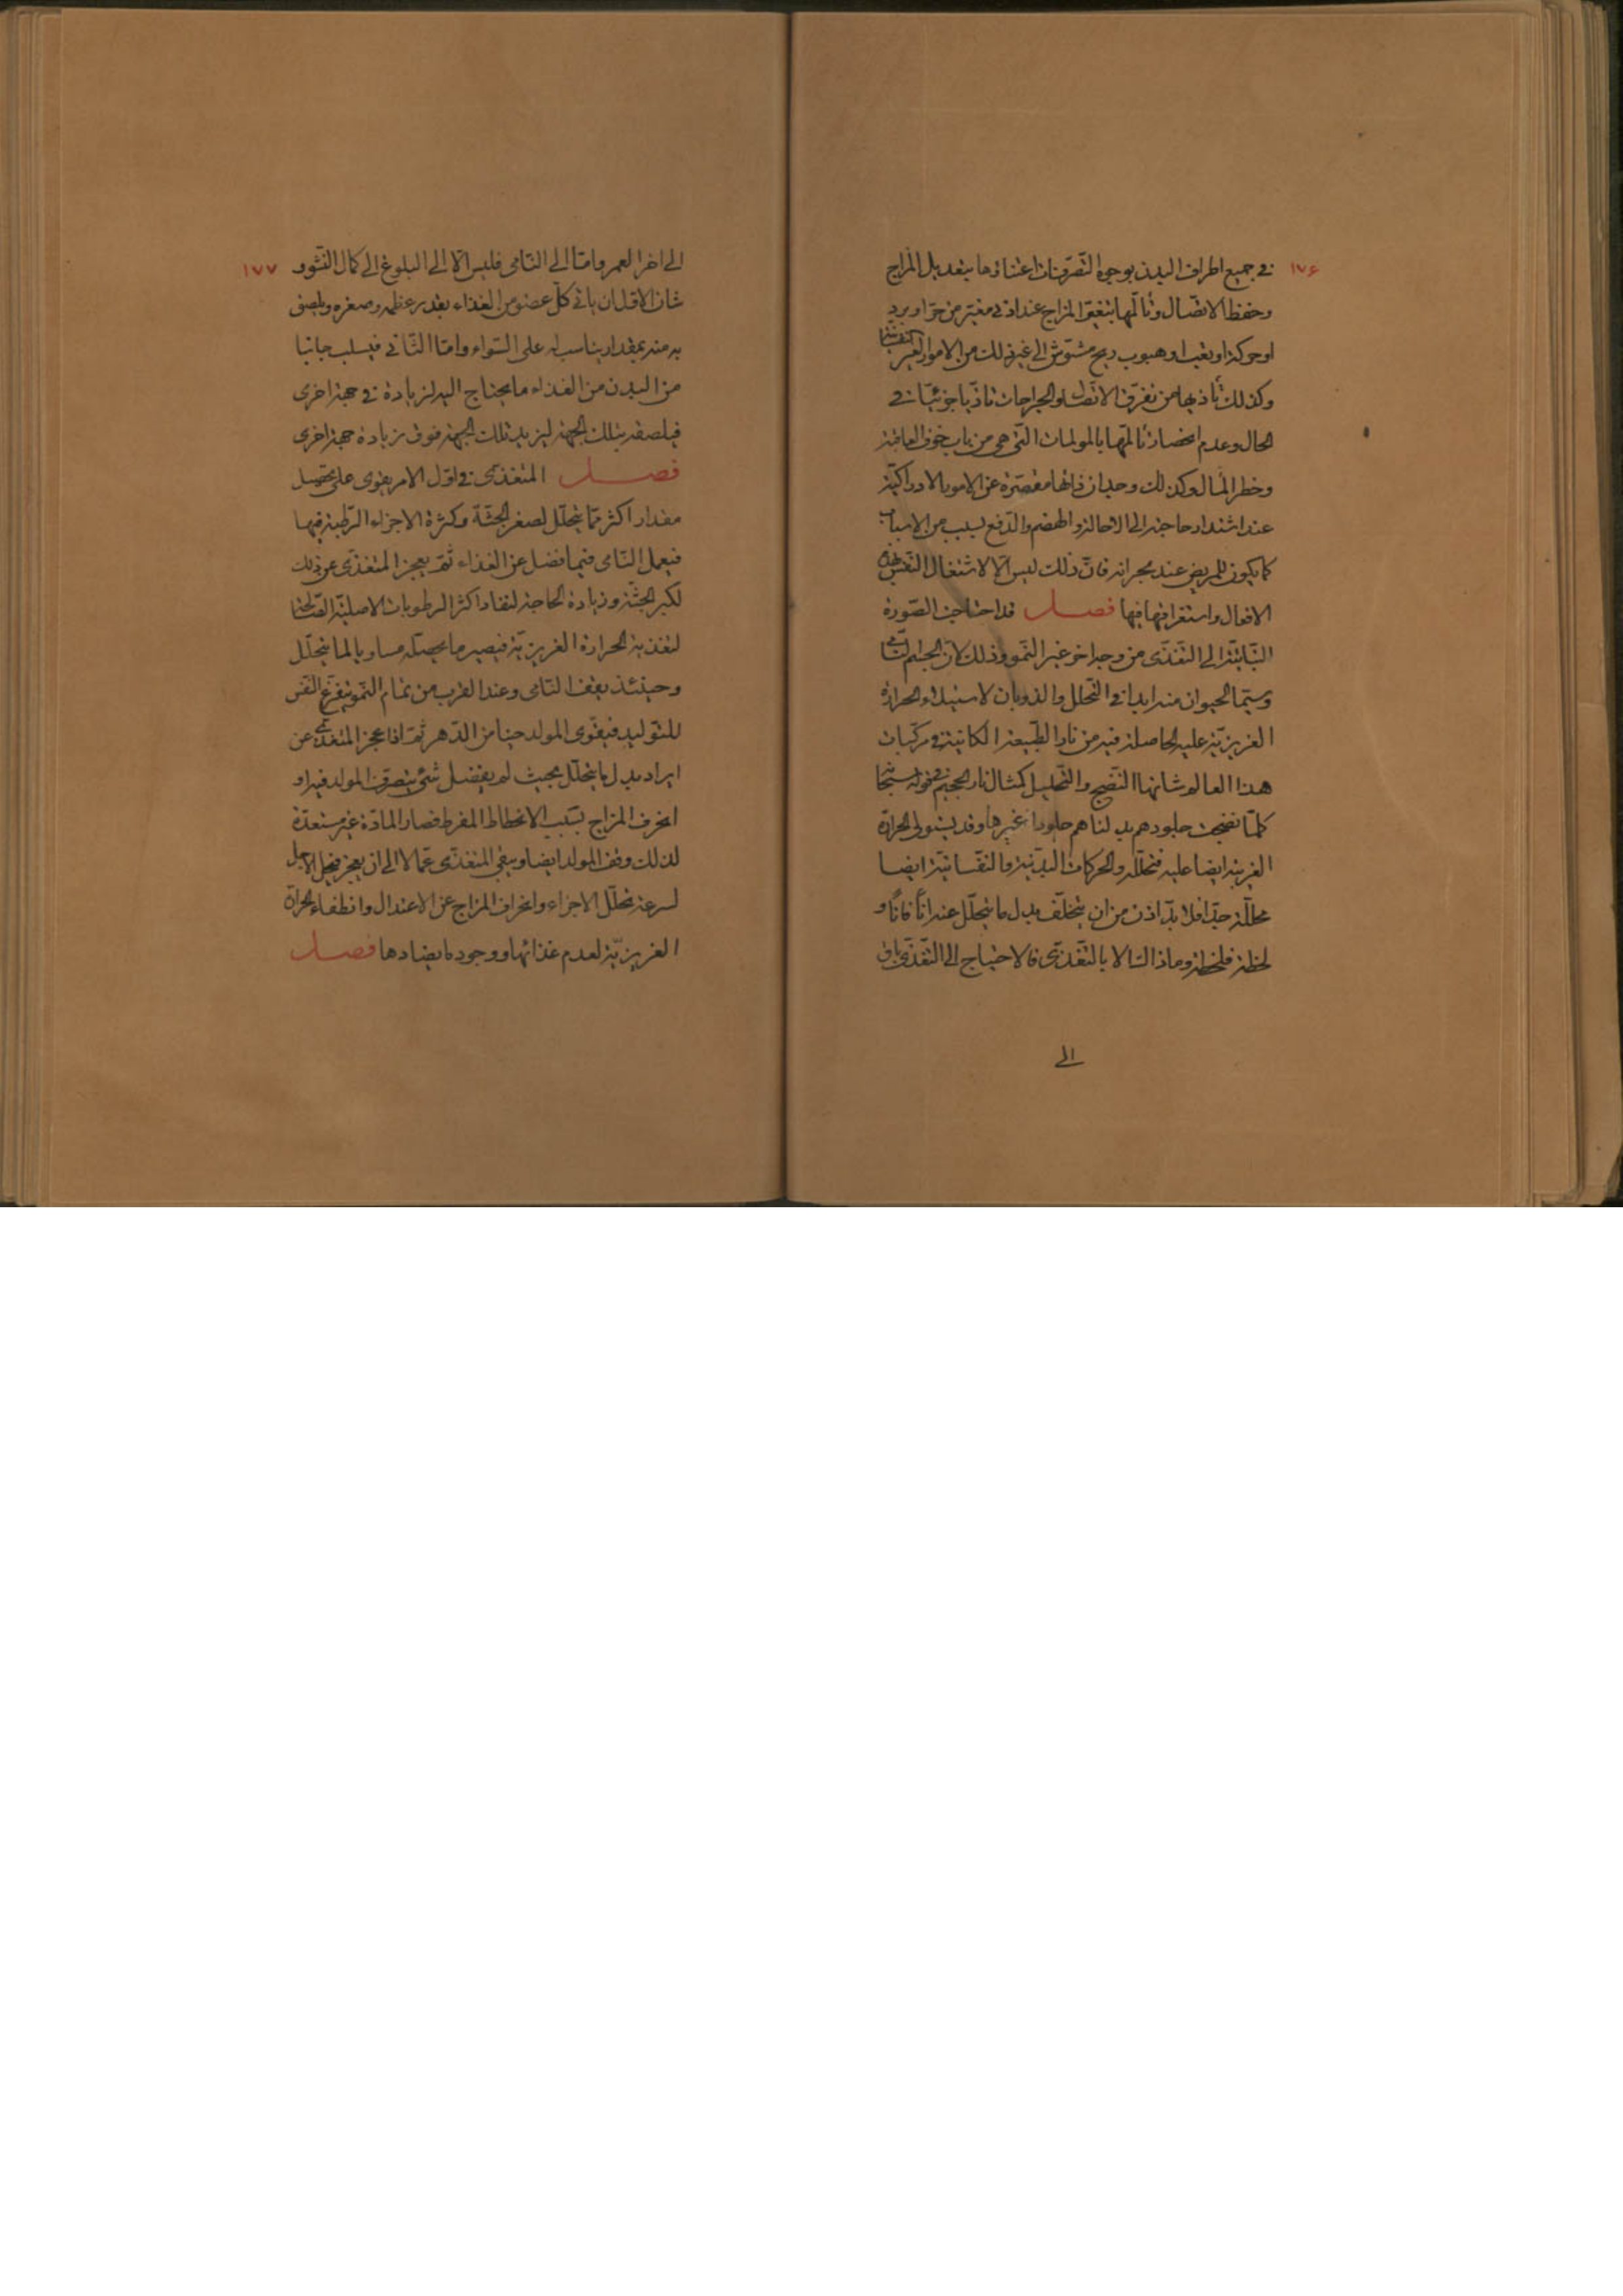 ١٧۶
في جميع اطراف البدن بوجوه التّصرّفات اعتناؤها بتعديل المزاج
وحفظ الاتصال وتألّمها بتغيّر المزاج عند ادنى مغيّر من حرّ او برد
او حركة او تعب او هبوب ريح مشوّش الى غير ذلك من الامور الغير
وكذلك تأذيها من تفرّق الاتّصال والجراحات تاذّيا جزئيّا في
الحال وعدم انحصار تألّمها بالمولمات الّتي هي من باب خوف العاقبة
وخطر المآل وكذلك وجدان ذاتها مقصّرة عن الامور الادراكيّة
عند اشتداد حاجته الى الاحالة والهضم والدّفع لسبب من الاسباب
كما يكون للمريض عند بحرانه فانّ ذلك ليس الّا لاشتغال النّفس بهذه
الافعال واستغراقها فيها فصل قد احتاجت الصّورة
النّباتيّة الى التّغذّى من وجه اخر غير النّمو وذلك لانّ الجسم النّامي
وسيّما الحيوان منه ابدا في التّحلّل والذوبان لاستيلاء الحرارة
الغريزيّة عليه الحاصلة فيه من نار الطّبيعة الكائنة في مركّبات
هذا العالم وشانها النّضج والتّحليل كمثال نار الجحيم في قوله سبحانه
كلّما نضجت جلودهم بدلناهم جلودا غيرها وقد يستولى الحرارة
الغريبة ايضا عليه فتحلّله والحركات البدنيّة والنفسانيّة ايضا
محلّلة جدّا فلا بدّ اذن من ان يتخلّف بدل ما يتحلّل عنه انًا فانًا و
لحظة فلحظة وما ذلك الّا بالتّغذّى فالاحتياج الى التّغذّى باق
الى
١٧٧
الى اخر العمر وامّا الى النّامى فليس الّا الى البلوغ الى كمال النّشو و
شان الاوّل ان ياتى كلّ عضو من الغذاء بقدر عظمه وصغره ويلصق
به منه بمقدار يناسب له على السّواء وامّا الثّاني فيسلب جانبا
من البدن من الغذاء ما يحتاج اليه لزيادة في جهة اخرى
فيلصقه بتلك الجهة ليزيد تلك الجهة فوق زيادة جهة اخرى
فصل المتغذّى في اوّل الامر يقوى على تحصيل
مقدار اكثر ممّا يتحلّل لصغر الجثّة وكثرة الاجزاء الرّطبة فيها
فيعمل النّامى فيما فضل عن الغذاء ثمّ يعجز المتغذّى عن ذلك
لكبر الجثّة وزيادة الحاجة لنفاد اكثر الرطوبات الاصليّة الصّالحة
لتغذية الحرارة الغريزيّة فيصير ما يحصّله مساويا لما يتحلّل
وحينئذ يقف النّامى وعند القرب من تمام النّمو يتفرّغ النّفس
للتّوليد فيقوى المولد حينا من الدّهر ثمّ اذا عجز المتغذّى عن
ايراد بدل ما يتحلّل بحيث لم يفضل شئ يتصرّف المولد فيه او
انحرف المزاج بسبب الانحطاط المفرط فصار المادّة غير مستعدّة
لذلك وقف المولد ايضا ويبقى المتغذّى عمّالا الى ان يعجز فيحلّ الاجل
لسرعة تحلّل الاجزاء وانحراف المزاج عن الاعتدال وانطفاء الحرارة
الغريزيّة لعدم غذائها ووجود ما يضادها فصل